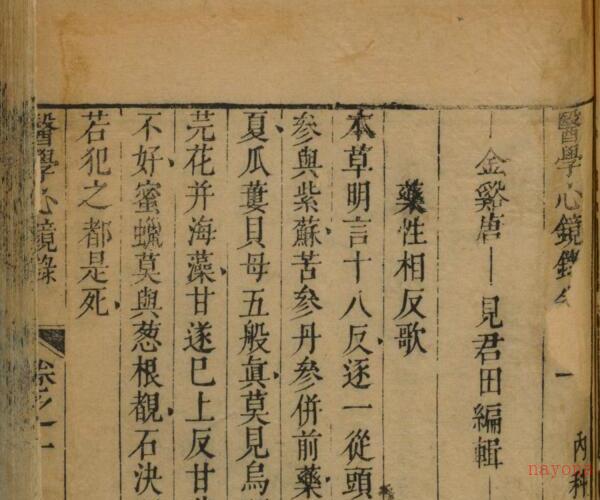 醫學心鏡錄
一
內科
金谿唐一見君田編輯
藥性相反歌
本草明言十八反逐一從頭
參與紫蘇苦參丹參併前藥
夏瓜蔞貝母五般眞莫見烏
芫花并海藻甘遂巳上反甘
不好蜜蠟莫與葱根覩石決
若犯之都是死
醫學心鏡錄
卷之一
nayona